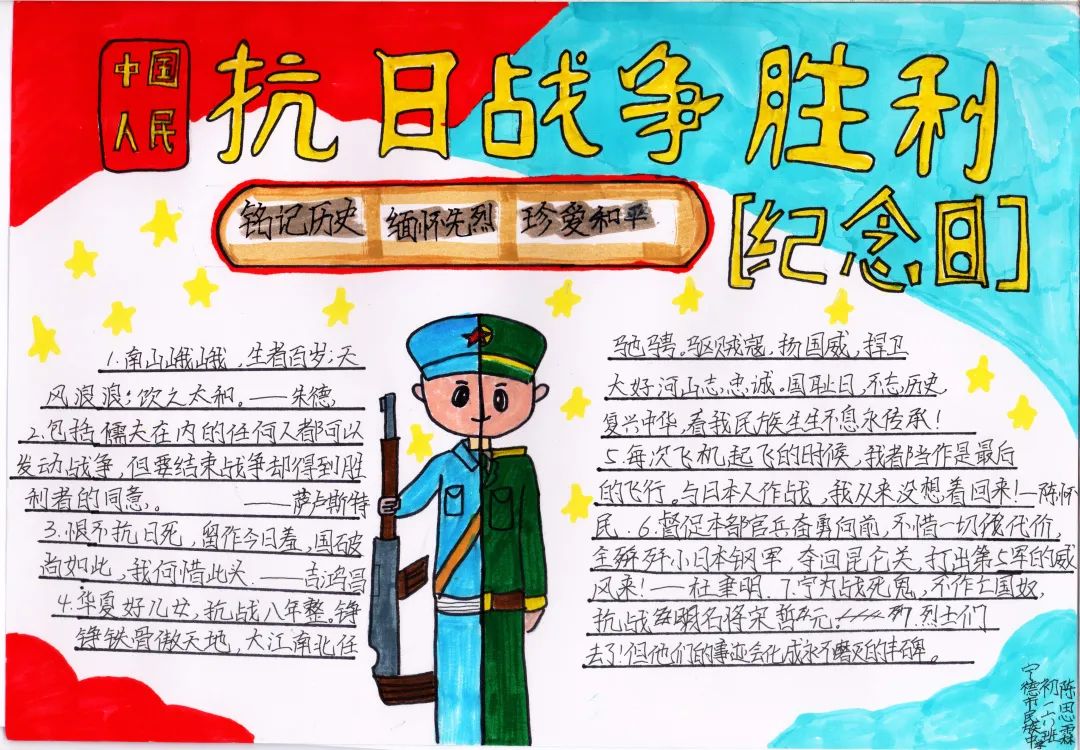 中国
人民
抗日战争胜利
[纪念日]
铭记历史 缅怀先烈 珍爱和平
1.南山峨峨,生者百岁;天
风浪浪;饮之太和。——朱德
2.包括懦夫在内的任何人都可以
发动战争,但要结束战争却得到胜
利者的同意。——萨卢斯特
3.恨不抗日死,留作今日羞,国破
尚如此,我何惜此头.——吉鸿昌
4.华夏好儿女,抗战八年整。铮
铮铁骨傲天地,大江南北任
驰骋。驱贼寇,扬国威,捍卫
大好河山志忠诚。国耻日,不忘历史
复兴中华,看我民族生生不息永传承!
5.每次飞机起飞的时候,我都当作是最后
的飞行。与日本人作战,我从来没想着回来!—陈怀
民.6.督促本部官兵奋勇向前,不惜一切代价,
全歼小日本钢军,夺回昆仑关,打出第5军的威
风来!——杜聿明.7.宁为战死鬼,不作亡国奴,
抗战名将宋哲元. 烈士们
去了!但他们的事迹会化成永不磨灭的丰碑。
宁德市民族中学
初一六班
陈思霖